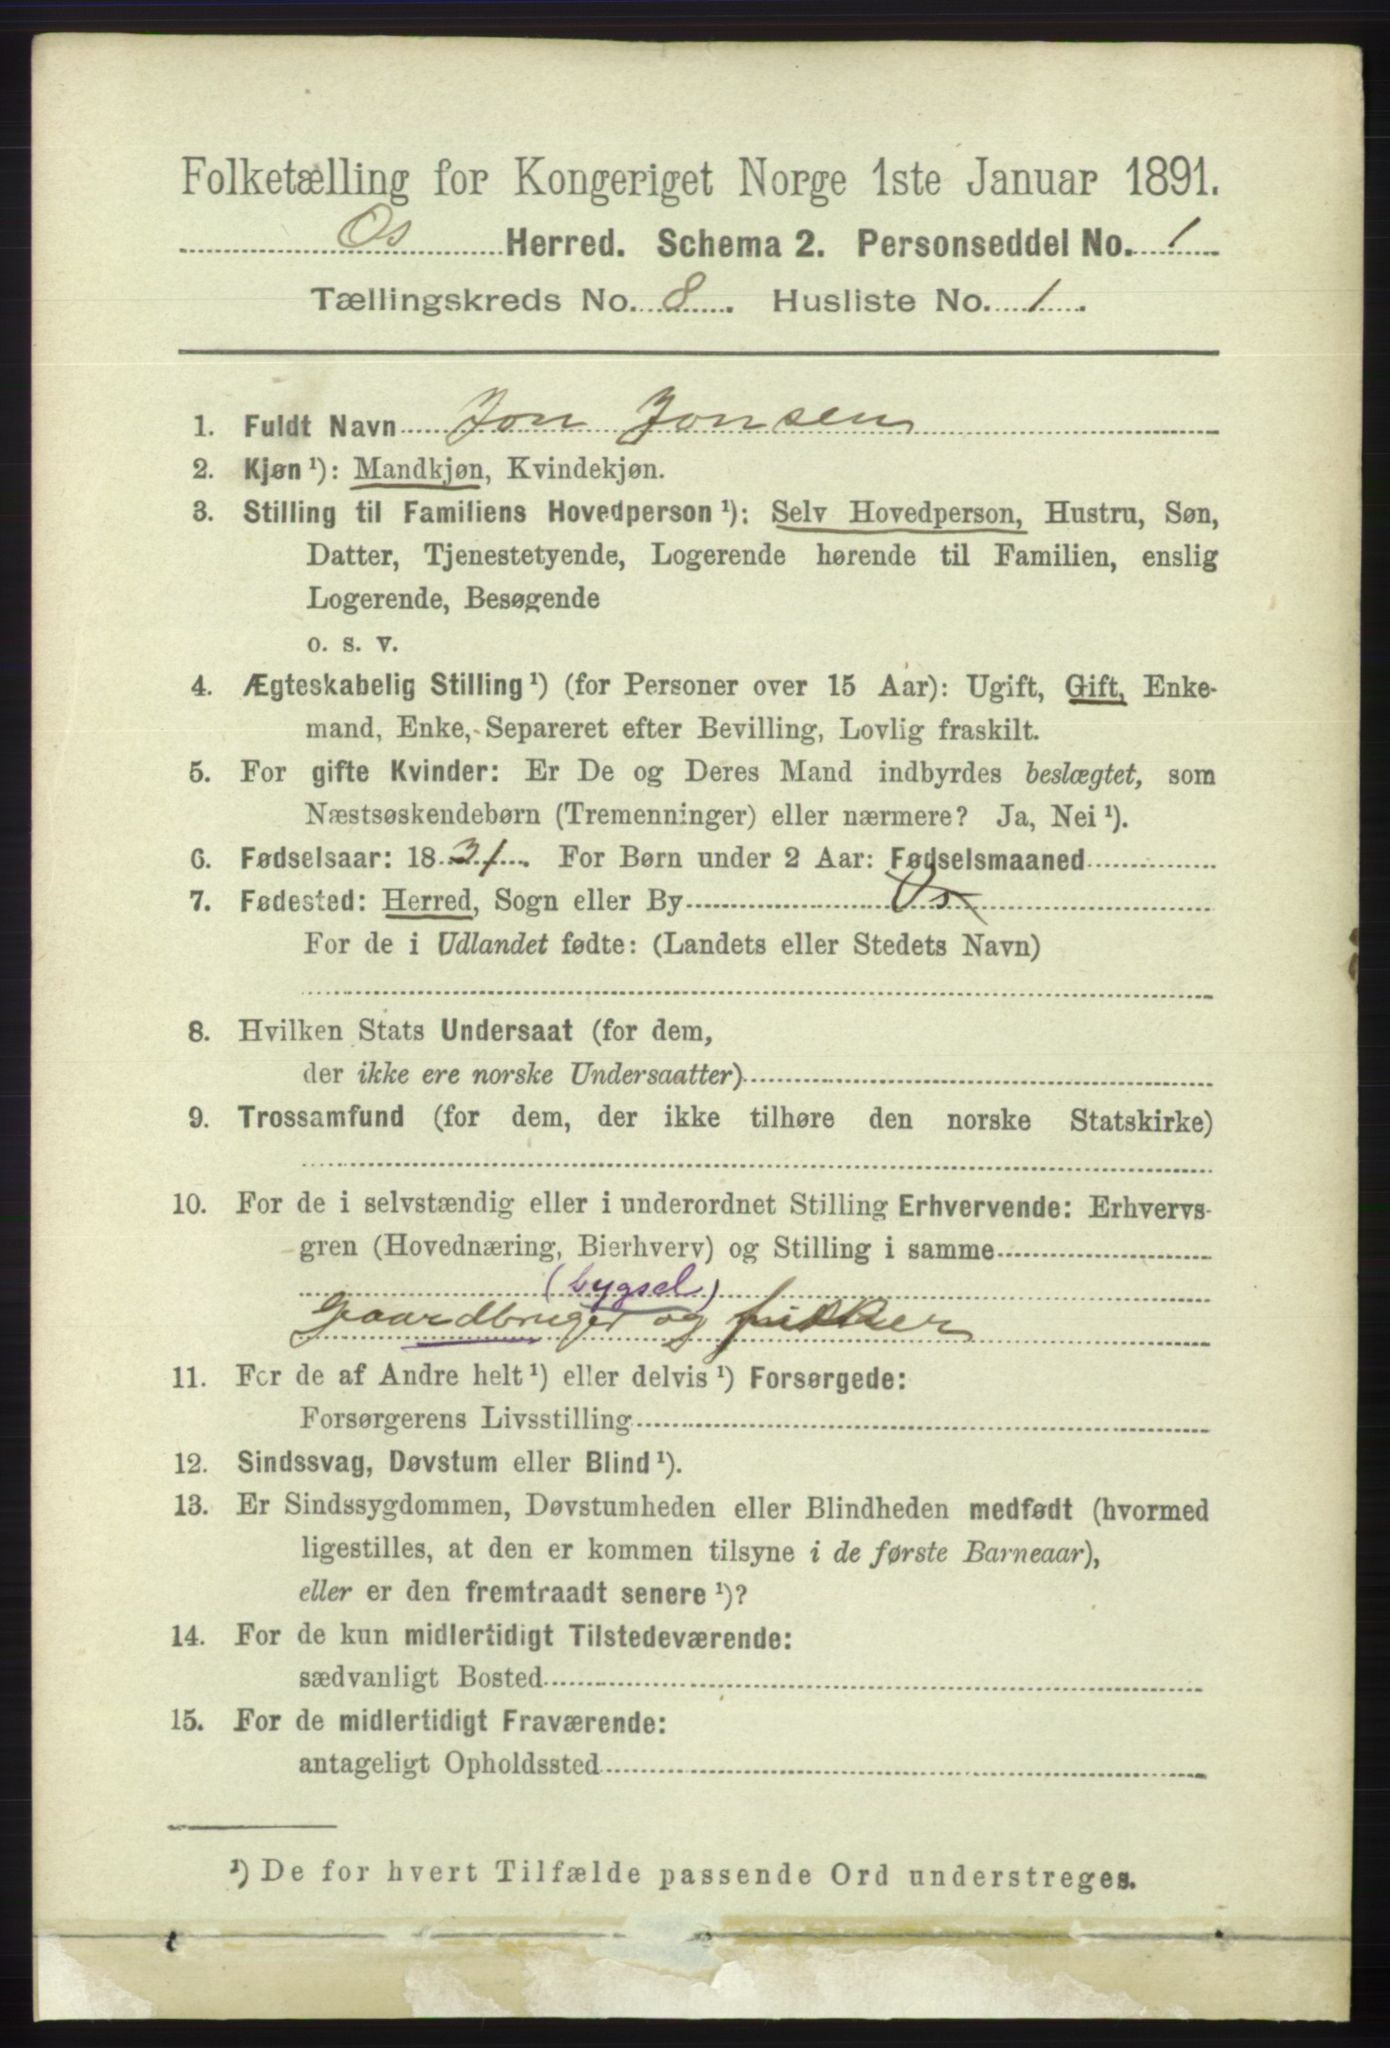 Folketælling for Kongeriget Norge 1ste Januar 1891.
Os Herred. Schema 2. Personseddel No. 1
Tællingskreds No. 8. Husliste No. 1.
1. Fuldt Navn Jon Jonsen
2. Kjøn ¹): Mandkjøn, Kvindekjøn.
3. Stilling til Familiens Hovedperson ¹): Selv Hovedperson, Hustru, Søn,
Datter, Tjenestetyende, Logerende hørende til Familien, enslig
Logerende, Besøgende
o. s. v.
4. Ægteskabelig Stilling ¹) (for Personer over 15 Aar): Ugift, Gift, Enke-
mand, Enke, Separeret efter Bevilling, Lovlig fraskilt.
5. For gifte Kvinder: Er De og Deres Mand indbyrdes beslægtet, som
Næstsøskendebørn (Tremenninger) eller nærmere? Ja, Nei ¹).
6. Fødselsaar: 1831. For Børn under 2 Aar: Fødselsmaaned
7. Fødested: Herred, Sogn eller By Os
For de i Udlandet fødte: (Landets eller Stedets Navn)
8. Hvilken Stats Undersaat (for dem,
der ikke ere norske Undersaatter)
9. Trossamfund (for dem, der ikke tilhøre den norske Statskirke)
10. For de i selvstændig eller i underordnet Stilling Erhvervende: Erhvervs-
gren (Hovednæring, Bierhverv) og Stilling i samme
(bygsel)
Gaardbruger og fisker
11. For de af Andre helt ¹) eller delvis ¹) Forsørgede:
Forsørgerens Livsstilling
12. Sindssvag, Døvstum eller Blind ¹).
13. Er Sindssygdommen, Døvstumheden eller Blindheden medfødt (hvormed
ligestilles, at den er kommen tilsyne i de første Barneaar),
eller er den fremtraadt senere ¹)?
14. For de kun midlertidigt Tilstedeværende:
sædvanligt Bosted
15. For de midlertidigt Fraværende:
antageligt Opholdssted
¹) De for hvert Tilfælde passende Ord understreges.